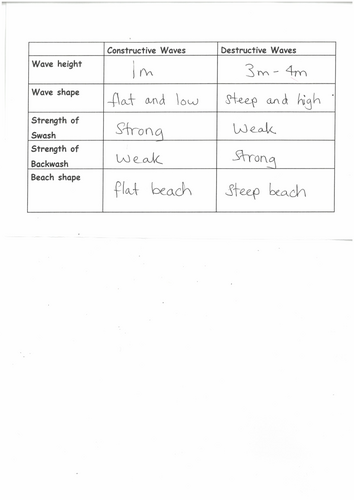 Constructive Waves Destructive Waves
Wave height 1m 3m - 4m
Wave shape flat and low steep and high
Strength of
Swash strong weak
Strength of
Backwash weak strong
Beach shape flat beach steep beach